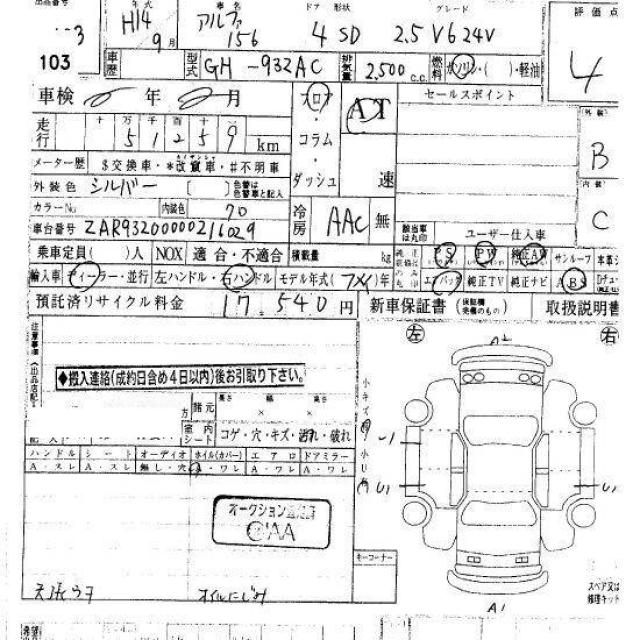 出品番号 年式 車名 ドア 形状 グレード 評価点
3 H14 9月 アルファ 156 4 SD 2.5 V6 24V
103 車歴 型式 GH-932AC 排気量 2,500 c.c. 燃料 ガソリン・( )・軽油 4
車検 年 月 フロア AT セールスポイント
走行 十 万 千 百 十
5 1 2 5 9 km コラム B
メーター歴 $交換車・*改ザン車・#不明車 ダッシュ 速 内装
外装色 シルバー [ ] 色替は色替車と記入 C
カラーNo 内装色 70 冷房 AAC 無
車台番号 ZAR93200000216029 該当車は丸印 ユーザー仕入車
乗車定員( )人 NOX 適合・不適合 積載量 kg PS PW 純正AW サンルーフ 本革シ
輸入車 ディーラー・並行 左ハンドル・右ハンドル モデル年式( )年 エアバッグ 純正TV 純正ナビ ABS
預託済リサイクル料金 17,540円 新車保証書 (保証継続備のもの) 取扱説明書
注意事項《出品店記 左 A2 右
◆搬入連絡(成約日含め4日以内)後お引取り下さい。
諸元 長さ 幅 高さ
方 × × 小キズ
室内 シート コゲ・穴・キズ・汚れ・破れ U1
ハンドル シート オーディオ ホイル(カバー) エアロ ドアミラー
A・スレ A・スレ 無し・穴 A・ワレ A・ワレ A・ワレ U1 U1
オークション
CAA
キーコーナー
天張ウキ オイルにじみ スペア又は修理キット
A1
希望